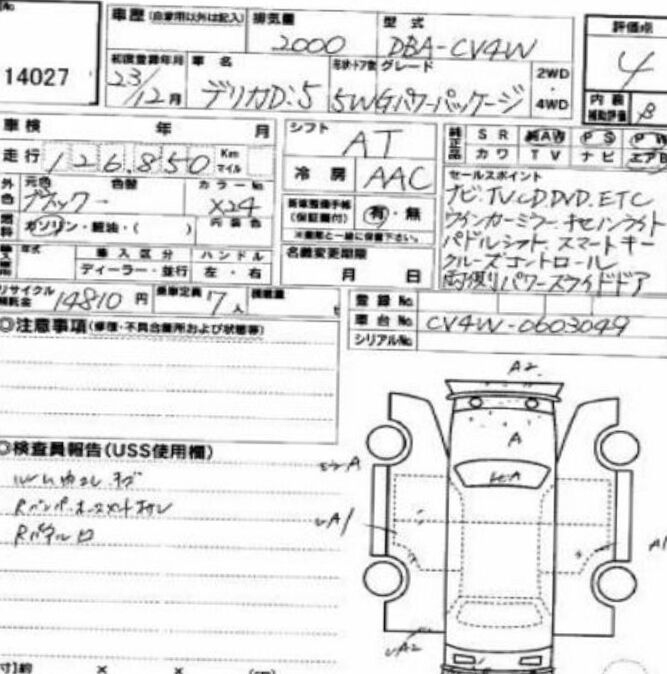 No
14027
車歴(自家用以外は記入) 排気量 型式
2000 DBA-CV4W
評価点
4
内装
補助評価 B
初度登録年月 車名 形状・ドア数 グレード
23/12月 デリカD:5 5W Gパワーパッケージ
2WD
・
4WD
車検 年 月
走行 126.850 Km
マイル
シフト AT
冷房 AAC
純正品 SR 純AW PS PW
カワ TV ナビ エアB
外色 元色 色替 カラーNo.
ブラック X24
内装色
燃料 ガソリン・軽油・( )
新車整備手帳
(保証書付) 有・無
※書類と一緒に保管下さい。
年式 輸入区分 ハンドル
ディーラー・並行 左・右
名義変更期限
月 日
セールスポイント
ナビ.TV.CD.DVD.ETC
ウインカーミラー キセノンライト
パドルシフト スマートキー
クルーズコントロール
両側パワースライドドア
リサイクル
預託金 14810円 乗車定員 7人 積載量 t
登録No.
車台No. CV4W-0603049
シリアルNo.
◎注意事項(修理・不具合箇所および状態等)
◎検査員報告(USS使用欄)
A2
A
A
A1
A1
A2
寸)約 × × (cm)